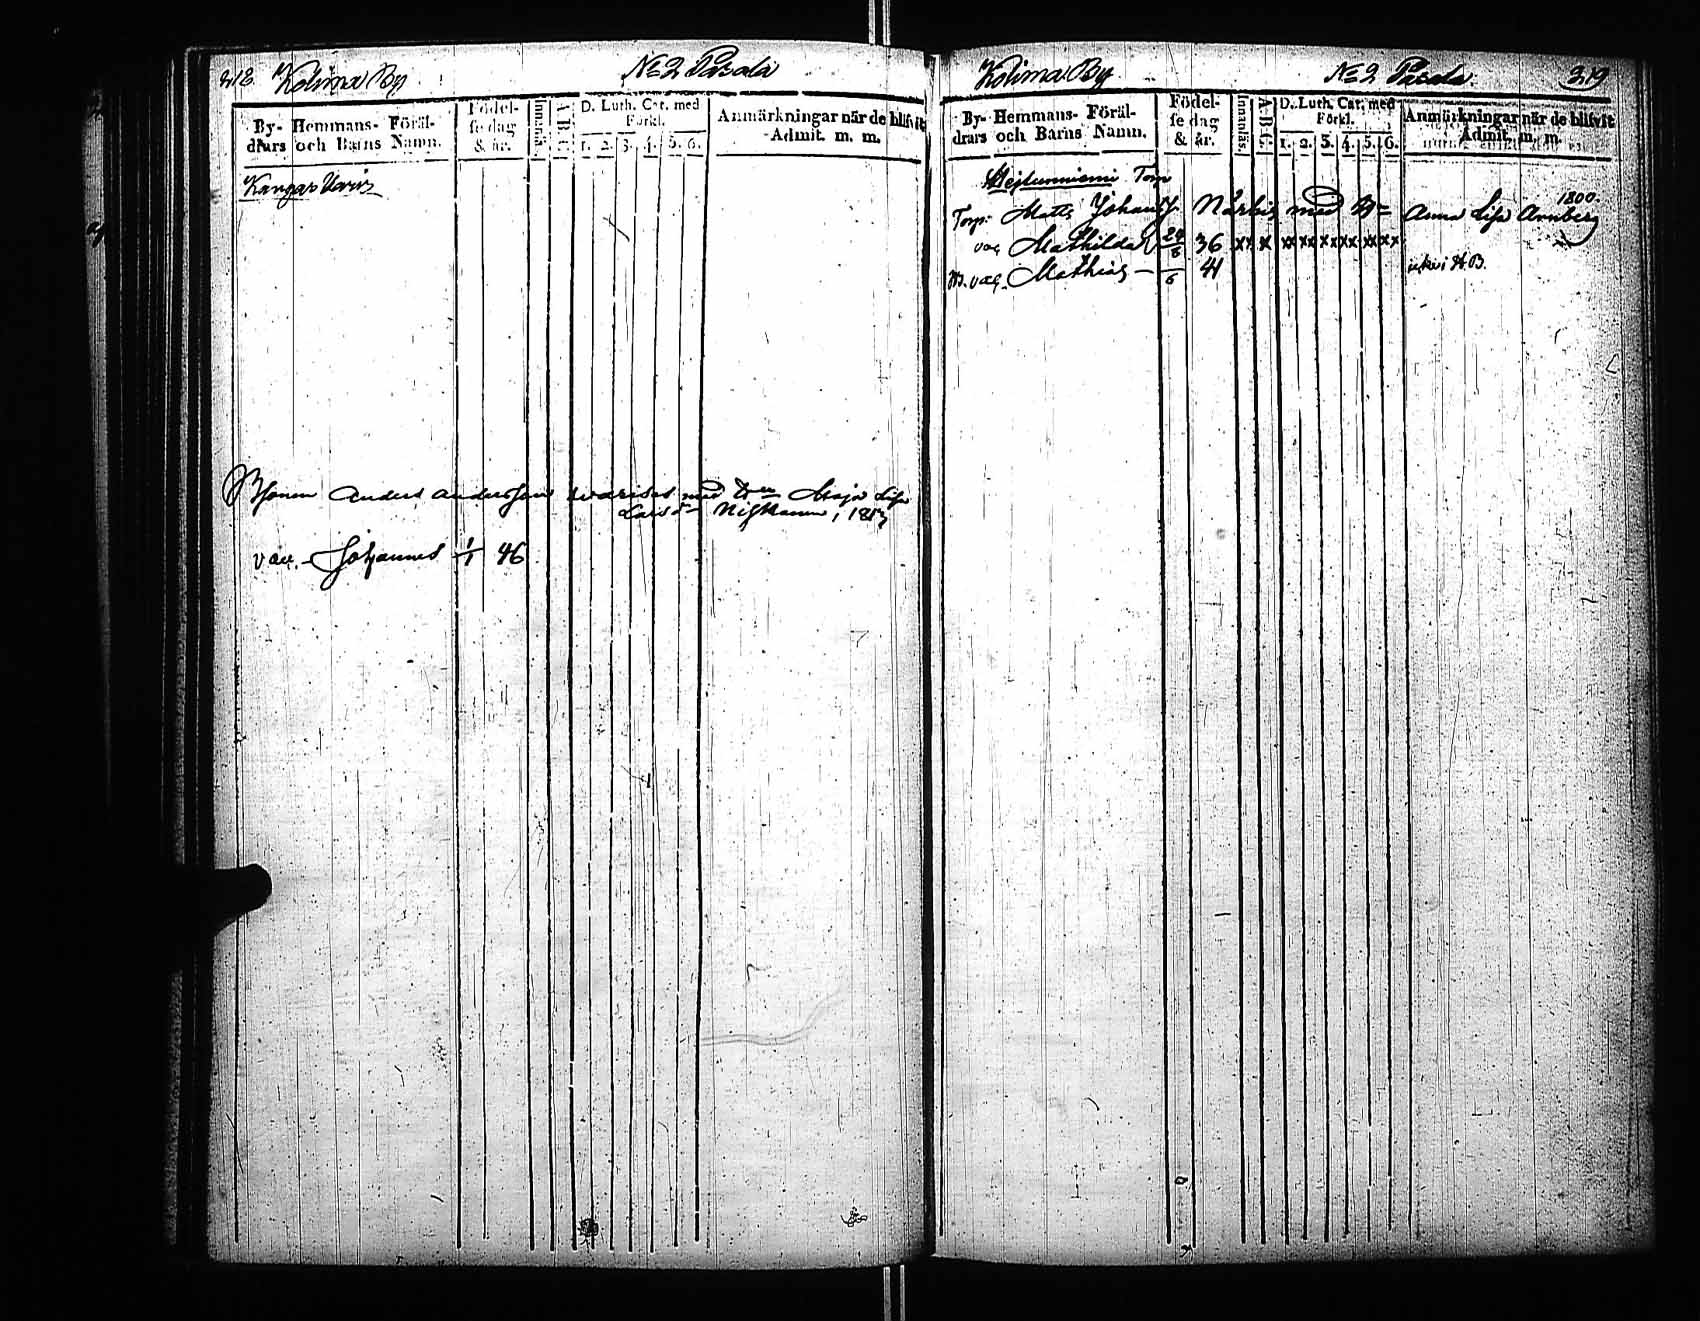 318. Kolima By
No 2 Pasala
By- Hemmans- Föräl-
drars och Barns Namn.
Födel-
se dag
& år.
Innanläs.
A B C.
D. Luth. Cat. med
Förkl.
1. 2. 3. 4. 5. 6.
Anmärkningar när de blifvit
Admit. m. m.
Kangas
Bsonen Anders Andersson med Maja Lisa
Lars dr 
vac. Johannes 1/1 46
Kolima By
No 2 Pasala
319
By- Hemmans- Föräl-
drars och Barns Namn.
Födel-
se dag
& år.
Innanläs.
A B C.
D. Luth. Cat. med
Förkl.
1. 2. 3. 4. 5. 6.
Anmärkningar när de blifvit
Admit. m. m.
Torp
1800.
Torp. Matts Johans Närhi med Anna Lisa
vac. Mathilda 36 xx x xx xx xx xx xx xx
vac. Mathias 6 41